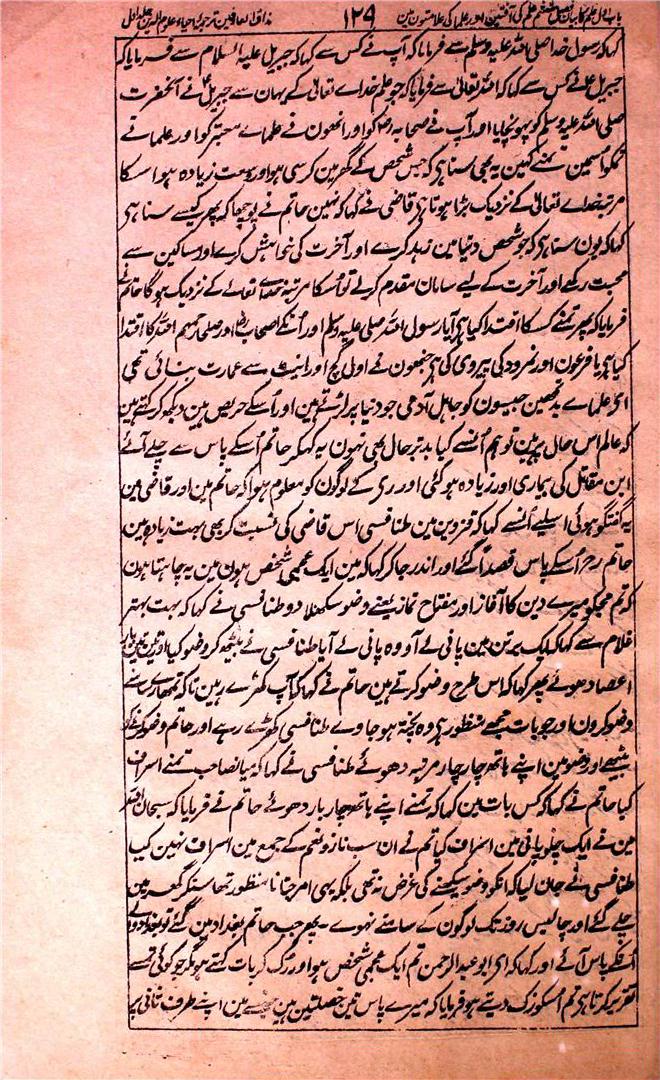 باب اول علم کا بیان فصل ششم علم کی آفتین اور علما کی علامتون مین ۱۲۹ مذاق العارفین ترجمۂ احیاء علوم الدین جلد اول
کہا کہ رسول خدا صلی اللہ علیہ وسلم سے فرمایا کہ آپ نے کس سے کہا کہ جبریل علیہ السلام سے فرمایا کہ
جبریل نے کس سے کہا کہ اللہ تعالی سے فرمایا کہ جو علم خداے تعالی کے یہان سے جبریل نے آنحضرت
صلی اللہ علیہ وسلم کو پہونچایا اور آپ نے صحابہ کو اور انھون نے علماے معتبر کو اور علما نے
تمکو اسمین تمنے کہین یہ بھی سنا ہی کہ جس شخص کے گھر مین کرسی ہو اور وسعت زیادہ ہو اسکا
مرتبہ خداے تعالی کے نزدیک بڑا ہوتا ہی قاضی نے کہا کہ نہین حاتم نے پوچھا کہ پھر کیسے سنا ہی
کہا کہ یون سنا ہی کہ جو شخص دنیا مین زہد کرے اور آخرت کی خواہش کرے اور مساکین سے
محبت رکھے اور آخرت کے لیے سامان مقدم کرلے تو اسکا مرتبہ خداے تعالے کے نزدیک ہوگا حاتم نے
فرمایا کہ پھر تمنے کسکا اقتدا کیا ہی آیا رسول اللہ صلی علیہ وسلم اور اُنکے اصحاب اور صلحا رحمہم اللہ کا اقتدا
کیا ہی یا فرعون اور نمرود کی پیروی کی ہی جنھون نے اول گچ اور اینٹ سے عمارت بنائی تھی
ای علماے بد تمھین جیسون کو جاہل آدمی جو دنیا پر لڑتے ہین اور اُسکے حریص ہین دیکھ کر کہتے ہین
کہ عالم اس حال پر ہین تو ہم اُنسے کیا بدتر حال بھی نہون یہ کہکر حاتم اُسکے پاس سے چلے آئے
ابن مقاتل کی بیماری اور زیادہ ہوگئی اور ری کے لوگون کو معلوم ہوا کہ حاتم مین اور قاضی مین
یہ گفتگو ہوئی اسلیے اُنسے کہا کہ قزوین مین طنافسی اس قاضی کی نسبت کر بھی بہت زیادہ ہین
حاتم رحم اُسکے پاس قصداً گئے اور اندر جا کر کہا کہ مین ایک عجمی شخص ہون مین یہ چاہتا ہون
کہ تم مجھکو میرے دین کا آغاز اور مفتاح نماز یعنے وضو سکھلا دو طنافسی نے کہا کہ بہت بہتر
غلام سے کہا کہ ایک برتن مین پانی لے آؤ وہ پانی لے آیا طنافسی نے بیٹھ کر وضو کیا اور تین تین بار
اعضا دھوئے پھر کہا کہ اس طرح وضو کرتے ہین حاتم نے کہا کہ آپ کھڑے رہین تاکہ تمھارے سامنے
وضو کرون اور جو بات مجھے منظور ہی وہ پختہ ہو جاوے طنافسی کھڑے رہے اور حاتم وضو کرنے کو
بیٹھے اور وضو مین اپنے ہاتھ چار چار مرتبہ دھوئے طنافسی نے کہا کہ میانصاحب تمنے اسراف
کیا حاتم نے کہا کہ کس بات مین کہا کہ تمنے اپنے ہاتھ چار بار دھوئے حاتم نے فرمایا کہ سبحان اللہ
مین نے ایک چلو پانی مین اسراف کیا تم نے ان سب ناز و نعم کے جمع مین اسراف نہین کیا
طنافسی نے جان لیا کہ انکو وضو سیکھنے کی غرض نہ تھی بلکہ یہی امر جتانا منظور تھا سنکر گھر مین
چلے گئے اور چالیس روز تک لوگون کے سامنے نہوے۔ پھر جب حاتم بغداد مین گئے تو بغداد والے
اُنکے پاس آئے اور کہا کہ ای ابو عبدالرحمن تم ایک عجمی شخص ہو اور رک رک کر بات کہتے ہو مگر جو کوئی تمسے
تقریر کرتا ہی تم اُسکو زک دیتے ہو فرمایا کہ میرے پاس تین خصلتین ہین جنسے مین اپنے طرف ثانی پر